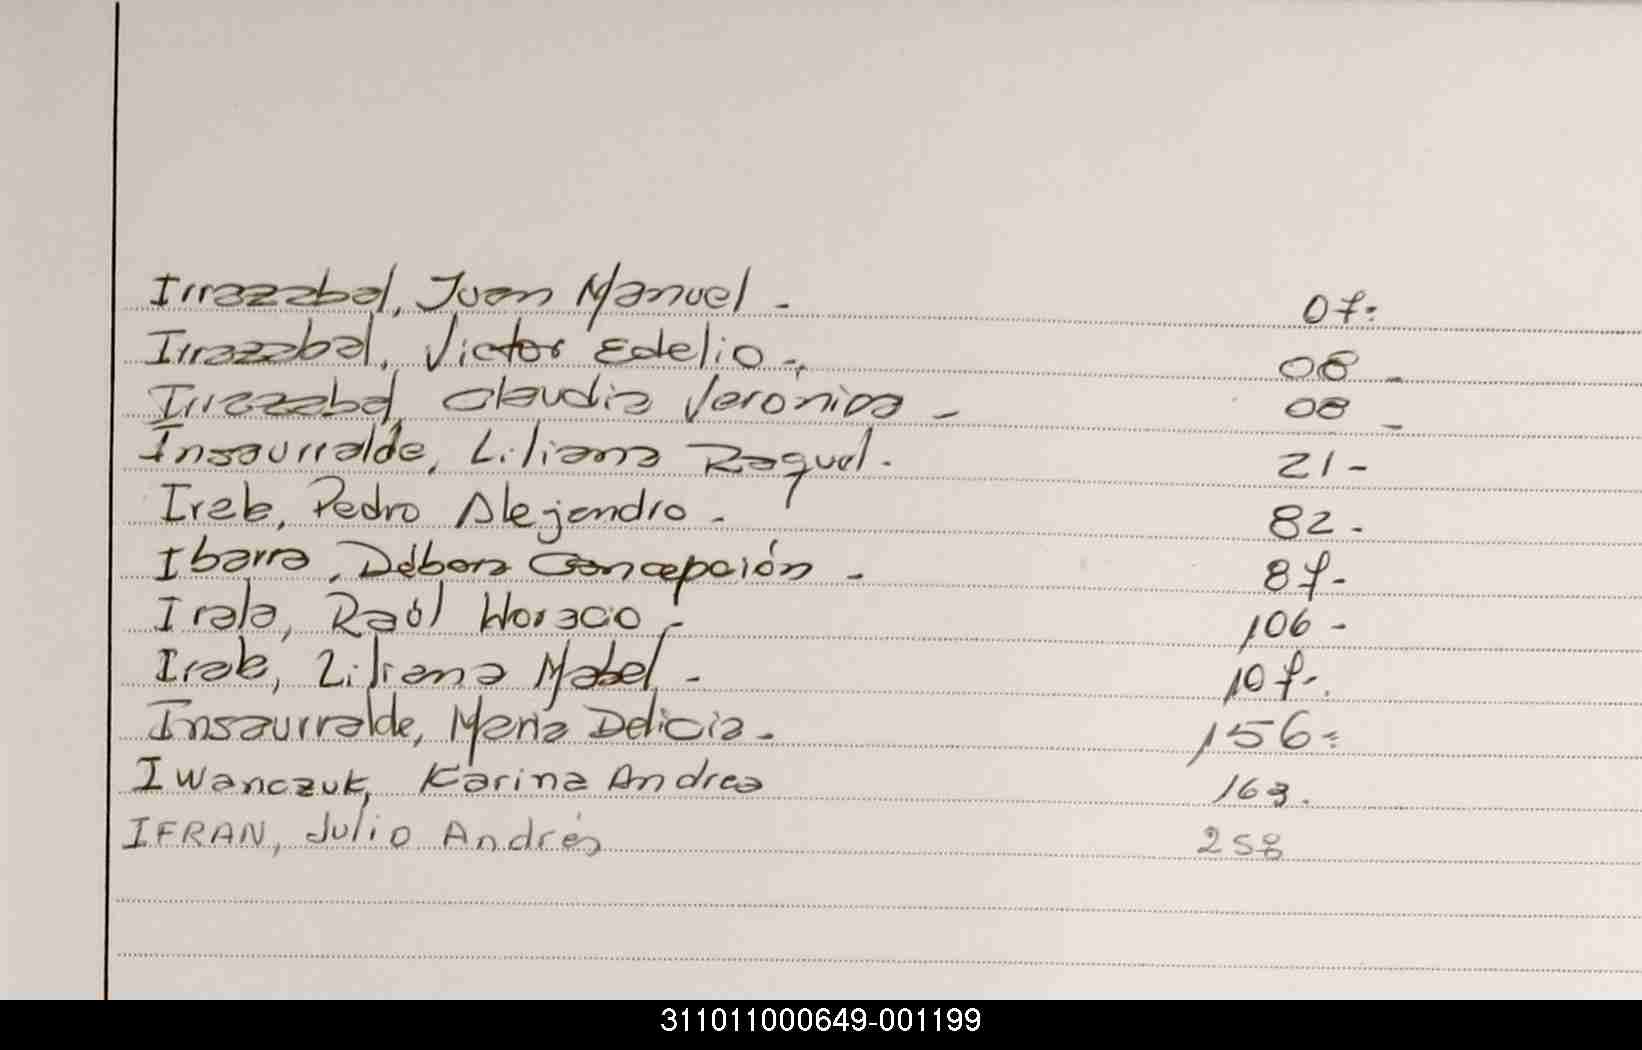 Irrazabal, Juan Manuel - 07-
Irrazabal, Victor Edelio - 08 -
Irrazabal, Claudia Veronica - 08 -
Insaurralde, Liliana Raquel. 21-
Irala, Pedro Alejandro. 82.
Ibarra, Débora Concepción - 87-
Irala, Raúl Horacio - 106 -
Irala, Liliana Mabel - 107-.
Insaurralde, María Delicia. 156-
Iwanczuk, Karina Andrea 163.
IFRAN, Julio Andrés 258
311011000649-001199